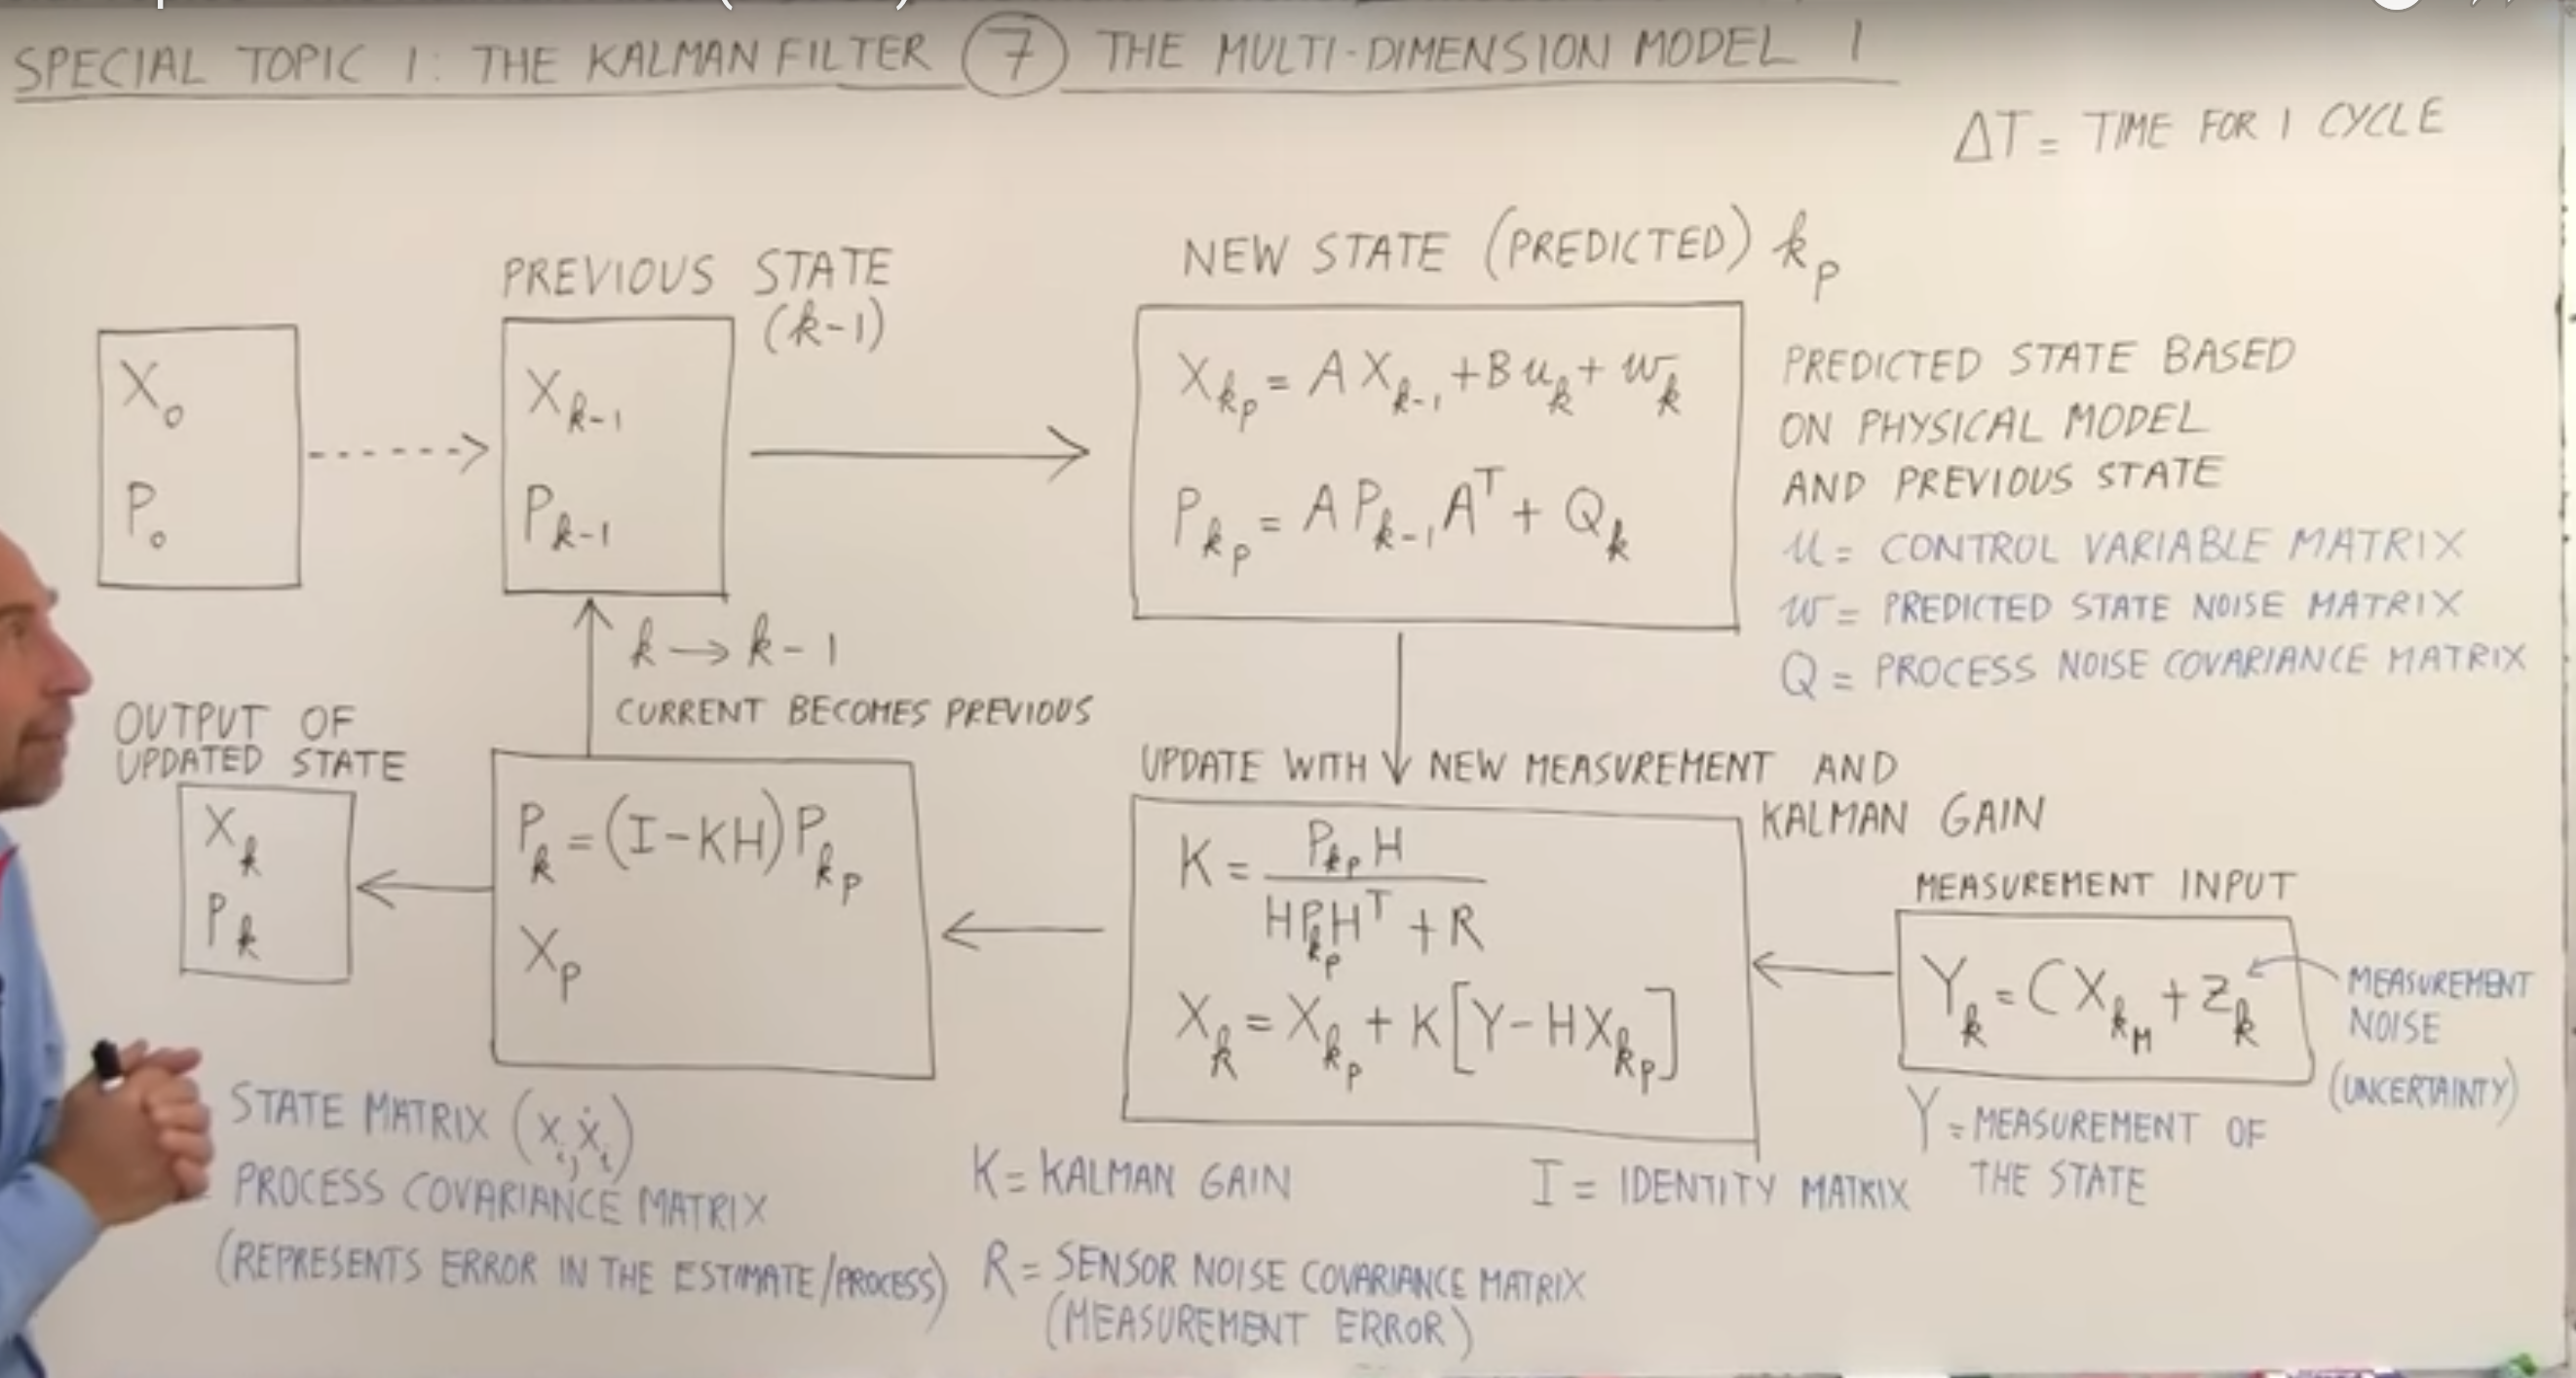 SPECIAL TOPIC 1: THE KALMAN FILTER 7 THE MULTI-DIMENSION MODEL 1
ΔT = TIME FOR 1 CYCLE
X₀
P₀
PREVIOUS STATE
(k-1)
X_{k-1}
P_{k-1}
NEW STATE (PREDICTED) k_p
X_{k_p} = A X_{k-1} + B u_k + w_k
P_{k_p} = A P_{k-1} A^T + Q_k
PREDICTED STATE BASED
ON PHYSICAL MODEL
AND PREVIOUS STATE
u = CONTROL VARIABLE MATRIX
w = PREDICTED STATE NOISE MATRIX
Q = PROCESS NOISE COVARIANCE MATRIX
k → k-1
CURRENT BECOMES PREVIOUS
OUTPUT OF
UPDATED STATE
X_k
P_k
P_k = (I-KH) P_{k_p}
X_p
UPDATE WITH NEW MEASUREMENT AND
KALMAN GAIN
K = P_{k_p} H
H P_{k_p} H^T + R
X_k = X_{k_p} + K [Y - H X_{k_p}]
MEASUREMENT INPUT
Y_k = C X_{k_M} + Z_k
MEASUREMENT
NOISE
(UNCERTAINTY)
Y = MEASUREMENT OF
THE STATE
STATE MATRIX (x_i, ẋ_i)
PROCESS COVARIANCE MATRIX
(REPRESENTS ERROR IN THE ESTIMATE/PROCESS)
K = KALMAN GAIN
I = IDENTITY MATRIX
R = SENSOR NOISE COVARIANCE MATRIX
(MEASUREMENT ERROR)